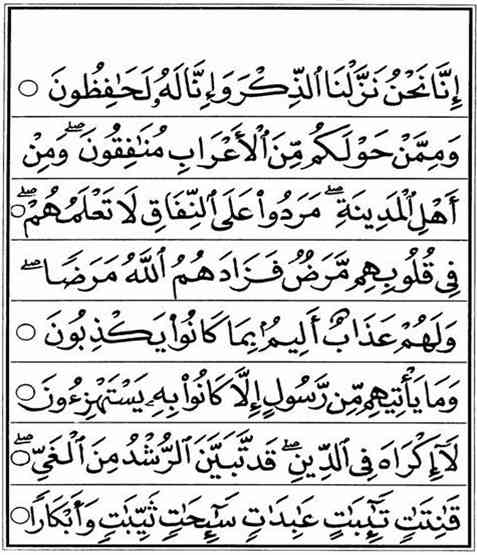 إِنَّا نَحْنُ نَزَّلْنَا ٱلذِّكْرَ وَإِنَّا لَهُۥ لَحَـٰفِظُونَ ○
وَمِمَّنْ حَوْلَكُم مِّنَ ٱلْأَعْرَابِ مُنَـٰفِقُونَ ۖ وَمِنْ
أَهْلِ ٱلْمَدِينَةِ ۖ مَرَدُوا۟ عَلَى ٱلنِّفَاقِ لَا تَعْلَمُهُمْ ۖ ○
فِى قُلُوبِهِم مَّرَضٌ فَزَادَهُمُ ٱللَّهُ مَرَضًا ۖ
وَلَهُمْ عَذَابٌ أَلِيمٌۢ بِمَا كَانُوا۟ يَكْذِبُونَ ○
وَمَا يَأْتِيهِم مِّن رَّسُولٍ إِلَّا كَانُوا۟ بِهِۦ يَسْتَهْزِءُونَ ○
لَآ إِكْرَاهَ فِى ٱلدِّينِ ۖ قَد تَّبَيَّنَ ٱلرُّشْدُ مِنَ ٱلْغَىِّ ۖ ○
قَـٰنِتَـٰتٍ تَـٰٓئِبَـٰتٍ عَـٰبِدَٰتٍ سَـٰٓئِحَـٰتٍ ثَيِّبَـٰتٍ وَأَبْكَارًا ○